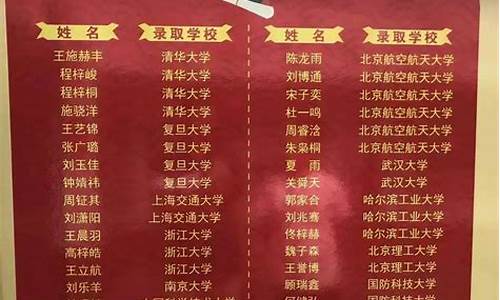 姓名 录取学校
王施赫丰 清华大学
程梓峻 清华大学
程梓桐 清华大学
施骁洋 清华大学
王艺锦 复旦大学
张广璐 复旦大学
刘玉佳 复旦大学
钟婧祎 复旦大学
周钲其 上海交通大学
刘潇阳 上海交通大学
王晨羽 浙江大学
高梓皓 浙江大学
王立航 浙江大学
刘乐羊 南京大学
姓名 录取学校
陈龙雨 北京航空航天大学
刘博通 北京航空航天大学
宋子奕 北京航空航天大学
杜一鸣 北京航空航天大学
周睿浛 北京航空航天大学
朱枭桐 北京航空航天大学
夏雨 武汉大学
关舜天 武汉大学
郭家合 哈尔滨工业大学
刘兆骞 哈尔滨工业大学
佟梓赫 哈尔滨工业大学
魏子森 北京理工大学
王誉博 北京理工大学
顾瑞鑫 国防科技大学
国防科技大学